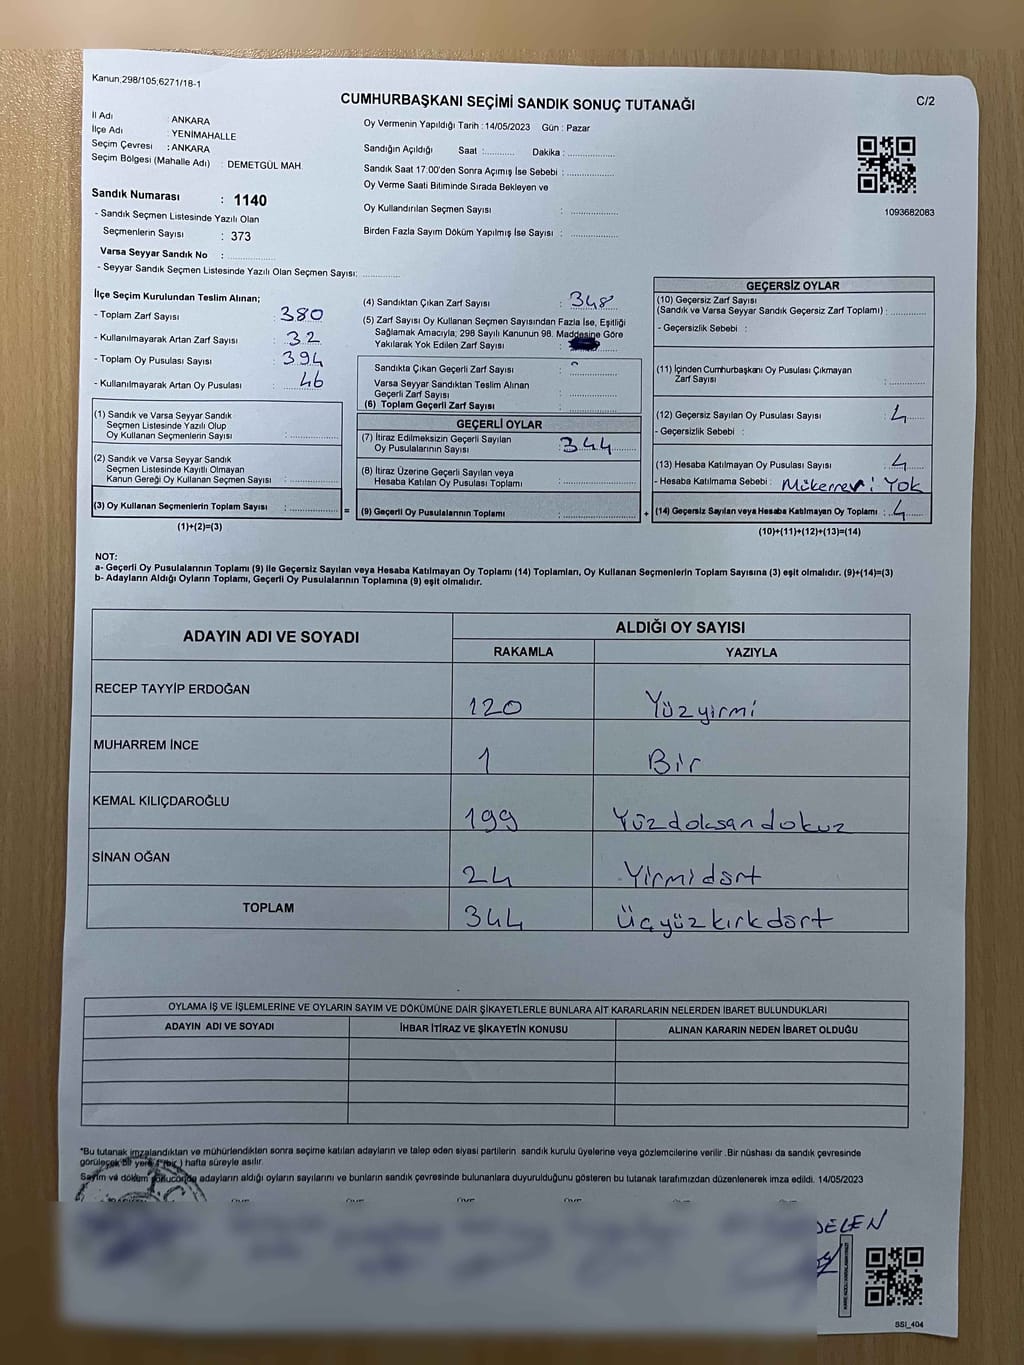 Kanun;298/105;6271/18-1
CUMHURBAŞKANI SEÇİMİ SANDIK SONUÇ TUTANAĞI
C/2
İl Adı : ANKARA
İlçe Adı : YENİMAHALLE
Seçim Çevresi : ANKARA
Seçim Bölgesi (Mahalle Adı) : DEMETGÜL MAH.
Sandık Numarası : 1140
- Sandık Seçmen Listesinde Yazılı Olan
Seçmenlerin Sayısı : 373
Varsa Seyyar Sandık No :
- Seyyar Sandık Seçmen Listesinde Yazılı Olan Seçmen Sayısı:
Oy Vermenin Yapıldığı Tarih : 14/05/2023 Gün : Pazar
Sandığın Açıldığı Saat : Dakika :
Sandık Saat 17:00'den Sonra Açımış İse Sebebi :
Oy Verme Saati Bitiminde Sırada Bekleyen ve
Oy Kullandırılan Seçmen Sayısı :
Birden Fazla Sayım Döküm Yapılmış İse Sayısı :
1093682083
İlçe Seçim Kurulundan Teslim Alınan;
- Toplam Zarf Sayısı : 380
- Kullanılmayarak Artan Zarf Sayısı : 32
- Toplam Oy Pusulası Sayısı : 394
- Kullanılmayarak Artan Oy Pusulası : 46
(1) Sandık ve Varsa Seyyar Sandık
Seçmen Listesinde Yazılı Olup
Oy Kullanan Seçmenlerin Sayısı :
(2) Sandık ve Varsa Seyyar Sandık
Seçmen Listesinde Kayıtlı Olmayan
Kanun Gereği Oy Kullanan Seçmen Sayısı :
(3) Oy Kullanan Seçmenlerin Toplam Sayısı : =
(1)+(2)=(3)
(4) Sandıktan Çıkan Zarf Sayısı : 348
(5) Zarf Sayısı Oy Kullanan Seçmen Sayısından Fazla İse, Eşitliği
Sağlamak Amacıyla; 298 Sayılı Kanunun 98. Maddesine Göre
Yakılarak Yok Edilen Zarf Sayısı :
Sandıkta Çıkan Geçerli Zarf Sayısı :
Varsa Seyyar Sandıktan Teslim Alınan
Geçerli Zarf Sayısı :
(6) Toplam Geçerli Zarf Sayısı :
GEÇERLİ OYLAR
(7) İtiraz Edilmeksizin Geçerli Sayılan
Oy Pusulalarının Sayısı : 344
(8) İtiraz Üzerine Geçerli Sayılan veya
Hesaba Katılan Oy Pusulası Toplamı :
(9) Geçerli Oy Pusulalarının Toplamı : +
GEÇERSİZ OYLAR
(10) Geçersiz Zarf Sayısı
(Sandık ve Varsa Seyyar Sandık Geçersiz Zarf Toplamı) :
- Geçersizlik Sebebi :
(11) İçinden Cumhurbaşkanı Oy Pusulası Çıkmayan
Zarf Sayısı :
(12) Geçersiz Sayılan Oy Pusulası Sayısı : 4
- Geçersizlik Sebebi :
(13) Hesaba Katılmayan Oy Pusulası Sayısı : 4
- Hesaba Katılmama Sebebi : Mükerrer : Yok
(14) Geçersiz Sayılan veya Hesaba Katılmayan Oy Toplamı : 4
(10)+(11)+(12)+(13)=(14)
NOT:
a- Geçerli Oy Pusulalarının Toplamı (9) ile Geçersiz Sayılan veya Hesaba Katılmayan Oy Toplamı (14) Toplamları, Oy Kullanan Seçmenlerin Toplam Sayısına (3) eşit olmalıdır. (9)+(14)=(3)
b- Adayların Aldığı Oyların Toplamı, Geçerli Oy Pusulalarının Toplamına (9) eşit olmalıdır.
ADAYIN ADI VE SOYADI ALDIĞI OY SAYISI
RAKAMLA YAZIYLA
RECEP TAYYİP ERDOĞAN 120 Yüzyirmi
MUHARREM İNCE 1 Bir
KEMAL KILIÇDAROĞLU 199 Yüzdoksandokuz
SİNAN OĞAN 24 Yirmidört
TOPLAM 344 Üçyüzkırkdört
OYLAMA İŞ VE İŞLEMLERİNE VE OYLARIN SAYIM VE DÖKÜMÜNE DAİR ŞİKAYETLERLE BUNLARA AİT KARARLARIN NELERDEN İBARET BULUNDUKLARI
ADAYIN ADI VE SOYADI İHBAR İTİRAZ VE ŞİKAYETİN KONUSU ALINAN KARARIN NEDEN İBARET OLDUĞU
*Bu tutanak imzalandıktan ve mühürlendikten sonra seçime katılan adayların ve talep eden siyasi partilerin sandık kurulu üyelerine veya gözlemcilerine verilir. Bir nüshası da sandık çevresinde
görülecek bir yere 1 (bir) hafta süreyle asılır.
Sayım ve döküm sonucunda adayların aldığı oyların sayılarını ve bunların sandık çevresinde bulunanlara duyurulduğunu gösteren bu tutanak tarafımızdan düzenlenerek imza edildi. 14/05/2023
DELEN
SSI_404